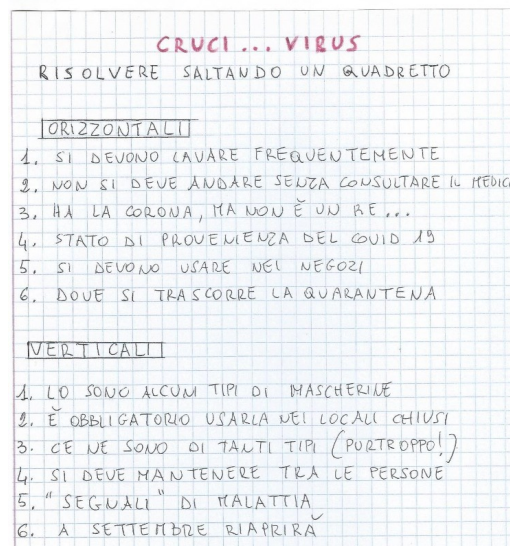 CRUCI... VIRUS
RISOLVERE SALTANDO UN QUADRETTO
ORIZZONTALI
1. SI DEVONO LAVARE FREQUENTEMENTE
2. NON SI DEVE ANDARE SENZA CONSULTARE IL MEDIC
3. HA LA CORONA, MA NON È UN RE...
4. STATO DI PROVENIENZA DEL COVID 19
5. SI DEVONO USARE NEI NEGOZI
6. DOVE SI TRASCORRE LA QUARANTENA
VERTICALI
1. LO SONO ALCUNI TIPI DI MASCHERINE
2. È OBBLIGATORIO USARLA NEI LOCALI CHIUSI
3. CE NE SONO DI TANTI TIPI (PURTROPPO!)
4. SI DEVE MANTENERE TRA LE PERSONE
5. "SEGNALI" DI MALATTIA
6. A SETTEMBRE RIAPRIRÀ